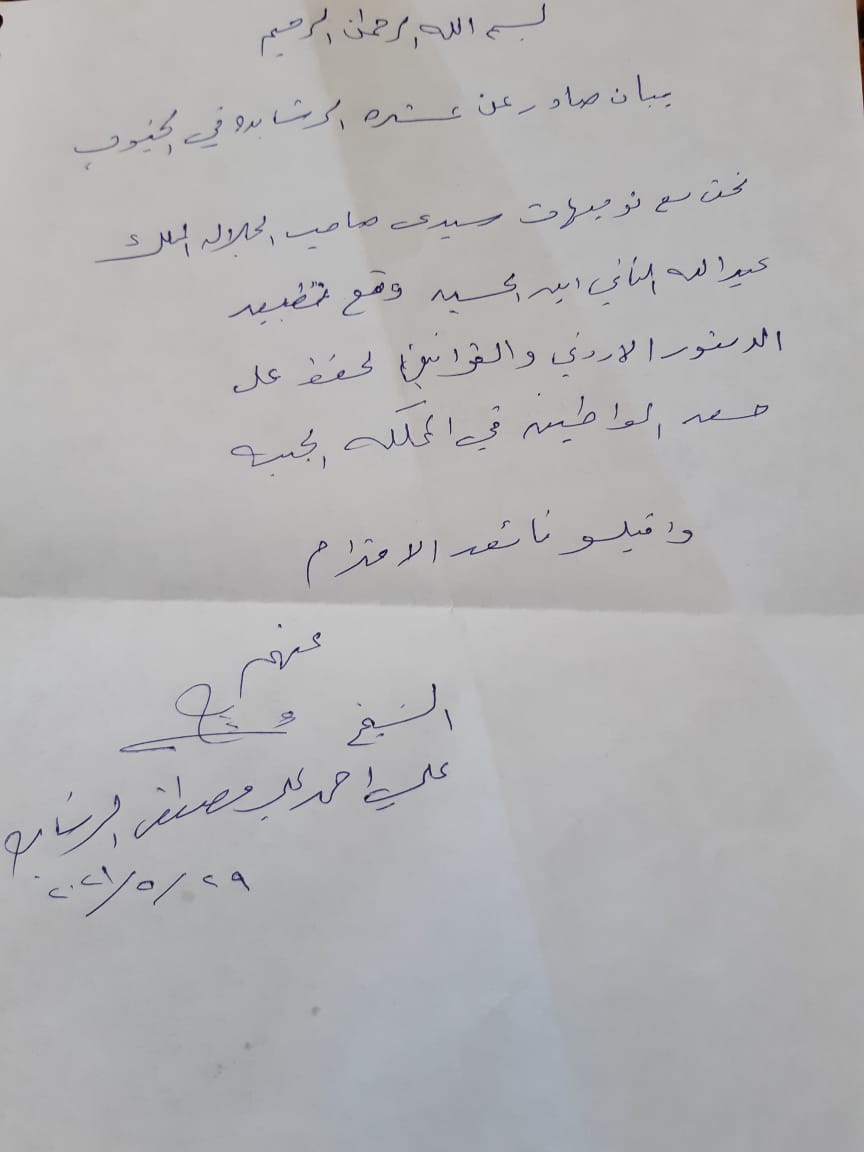 بسم الله الرحمن الرحيم
بيان صادر عن عشيره الرشايده في الجنوب
نحن مع توجيهات سيدي صاحب الجلاله الملك
عبدالله الثاني ابن الحسين ومع تطبيق
الدستور الاردني والقوانين لحفظ على
حق المواطن في المملكه الحبيبه
واقبلو فائق الاحترام
عنهم
الشيخ
علي احمد علي مصطفى الرشايده
٢٠٢١/٥/٢٩